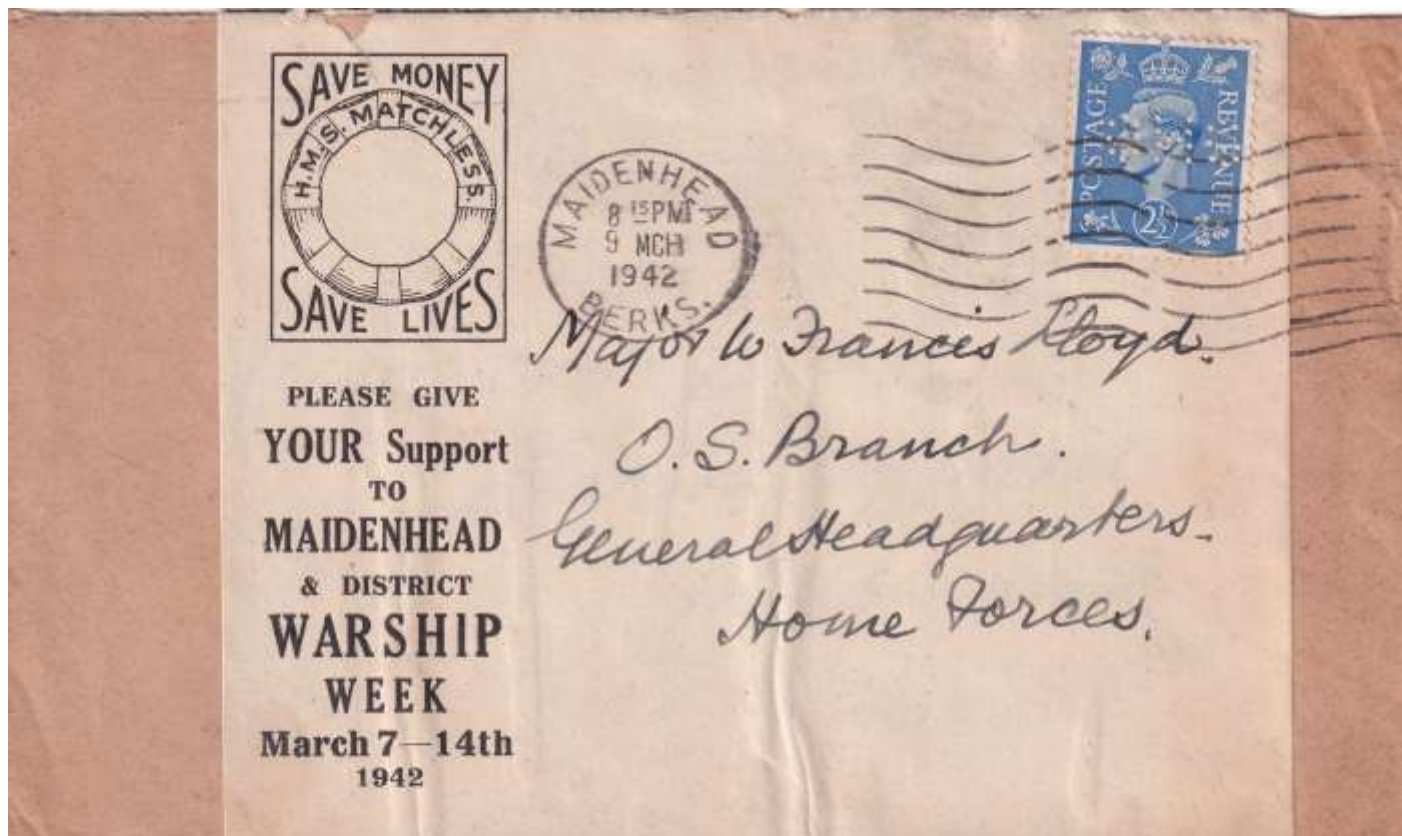 SAVE MONEY
H.M.S. MATCHLESS.
SAVE LIVES
PLEASE GIVE
YOUR Support
TO
MAIDENHEAD
& DISTRICT
WARSHIP
WEEK
March 7—14th
1942
MAIDENHEAD
8 15 PM
9 MCH
1942
BERKS.
POSTAGE
REVENUE
2½
Major W Francis Lloyd.
O.S. Branch.
General Headquarters.
Home Forces.